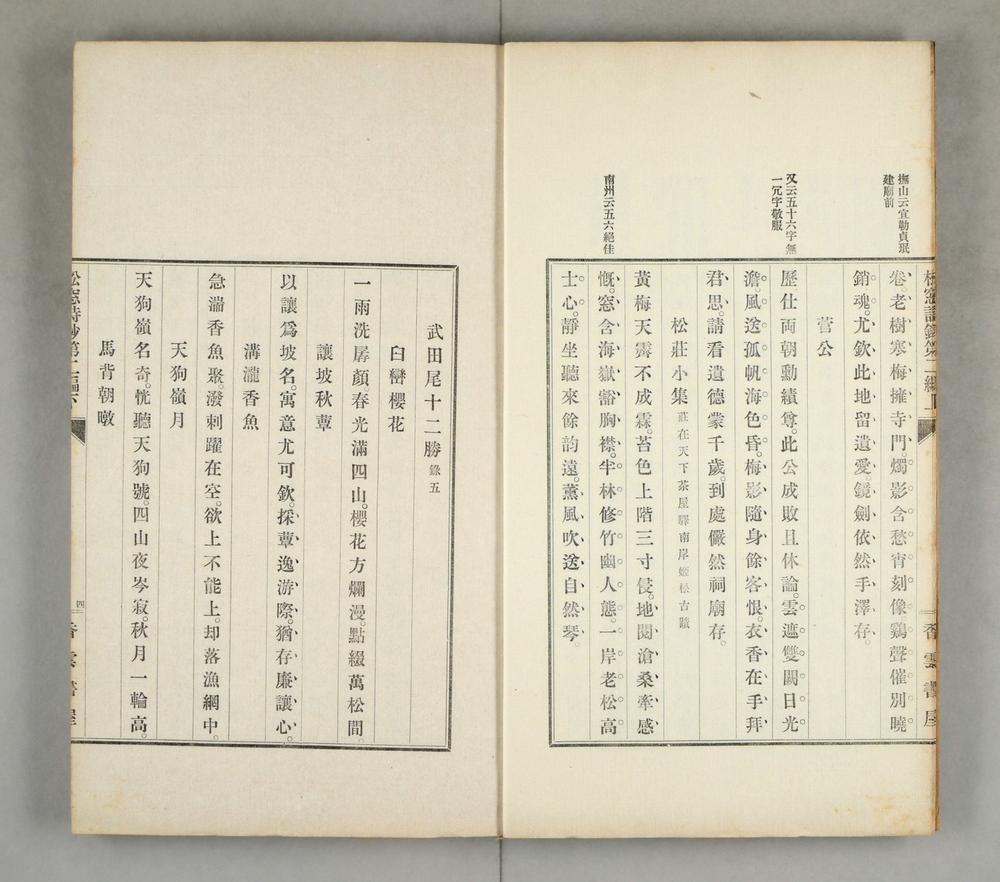 撫山云宜勒貞珉
建廟前
又云五十六字無
一冗字敬服
南州云五六絕佳
卷。老樹寒梅擁寺門。燭影含愁宵刻像。鷄聲催別曉
銷魂。尤欽此地留遺愛。鏡劍依然手澤存。
菅公
歷仕両朝勳績尊。此公成敗且休論。雲遮雙闕日光
澹。風送孤帆海色昏。梅影隨身餘客恨。衣香在手拜
君思。請看遺德蒙千歲。到處儼然祠廟存。
松莊小集 莊在天下茶屋驛南岸姬松古蹟
黃梅天霽不成霖。苔色上階三寸侵。地閱滄桑牽感
慨。窓含海嶽豁胸襟。半林修竹幽人態。一岸老松高
士心。靜坐聽來餘韵遠。薰風吹送自然琴。
武田尾十二勝 錄五
臼巒櫻花
一雨洗孱顏春光滿四山。櫻花方爛漫。點綴萬松間。
讓坡秋蕈
以讓爲坡名。寓意尤可欽。採蕈逸游際。猶存廉讓心。
溝瀧香魚
急湍香魚聚。潑刺躍在空。欲上不能上。却落漁網中。
天狗嶺月
天狗嶺名奇。恍聽天狗號。四山夜岑寂。秋月一輪高。
馬背朝暾
四